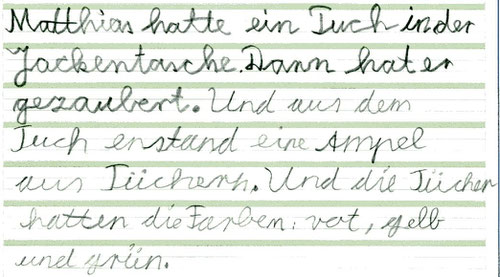 Matthias hatte ein Tuch in der
Jackentasche. Dann hat er
gezaubert. Und aus dem
Tuch enstand eine Ampel
aus Tüchern. Und die Tücher
hatten die Farben: rot, gelb
und grün.